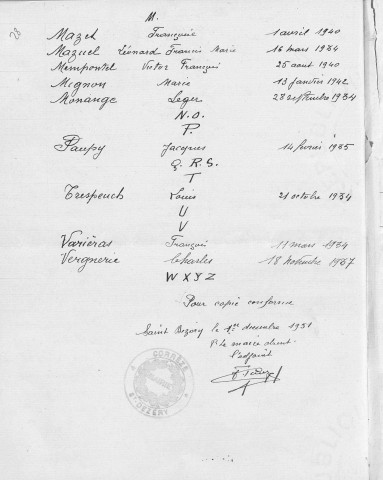 M.
Mazet Françoise 1 avril 1940
Mazuel Léonard Francis Marie 16 mars 1934
Mempontel Victor François 25 août 1940
Mignon Marie 13 janvier 1942
Monange Leger 28 septembre 1934
N.O.
P.
Paupy Jacques 14 février 1935
Q.R.S.
T
Trespeuch Louis 21 octobre 1934
U
V
Variéras François 11 mars 1934
Vergnerie Charles 18 Novembre 1937
W X Y Z
Pour copie conforme
Saint Bazory le 1er décembre 1951
P. le maire
l'adjoint
CORRÈZE